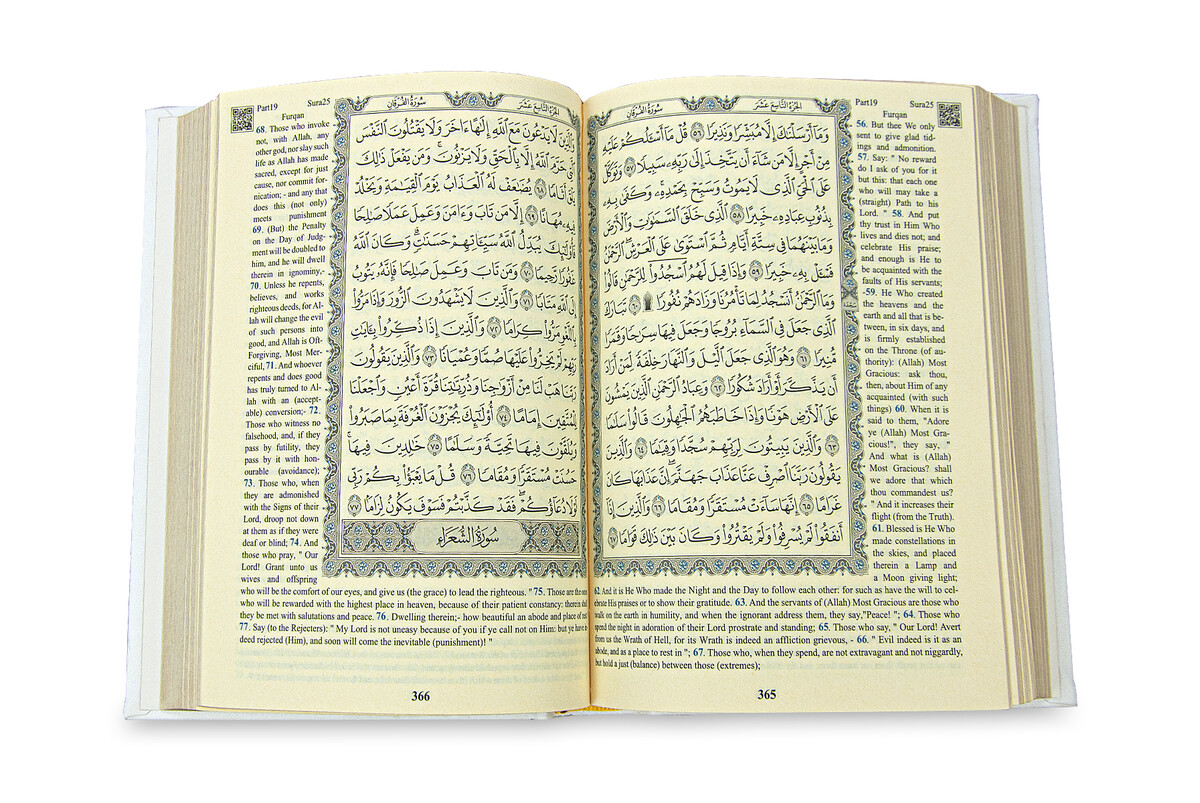 Part19 Sura25
Furqan
الجزء التاسع عشر سورة الفرقان
وَمَا أَرْسَلْنَاكَ إِلَّا مُبَشِّرًا وَنَذِيرًا ۝٥٦ قُلْ مَا أَسْـَٔلُكُمْ عَلَيْهِ
مِنْ أَجْرٍ إِلَّا مَن شَاءَ أَن يَتَّخِذَ إِلَىٰ رَبِّهِ سَبِيلًا ۝٥٧ وَتَوَكَّلْ
عَلَى الْحَيِّ الَّذِي لَا يَمُوتُ وَسَبِّحْ بِحَمْدِهِ ۚ وَكَفَىٰ بِهِ
بِذُنُوبِ عِبَادِهِ خَبِيرًا ۝٥٨ الَّذِي خَلَقَ السَّمَٰوَٰتِ وَالْأَرْضَ
وَمَا بَيْنَهُمَا فِي سِتَّةِ أَيَّامٍ ثُمَّ اسْتَوَىٰ عَلَى الْعَرْشِ ۚ الرَّحْمَٰنُ
فَسْـَٔلْ بِهِ خَبِيرًا ۝٥٩ وَإِذَا قِيلَ لَهُمُ اسْجُدُوا لِلرَّحْمَٰنِ قَالُوا
وَمَا الرَّحْمَٰنُ أَنَسْجُدُ لِمَا تَأْمُرُنَا وَزَادَهُمْ نُفُورًا ۩ ۝٦٠ تَبَارَكَ
الَّذِي جَعَلَ فِي السَّمَاءِ بُرُوجًا وَجَعَلَ فِيهَا سِرَاجًا وَقَمَرًا
مُّنِيرًا ۝٦١ وَهُوَ الَّذِي جَعَلَ اللَّيْلَ وَالنَّهَارَ خِلْفَةً لِّمَنْ أَرَادَ
أَن يَذَّكَّرَ أَوْ أَرَادَ شُكُورًا ۝٦٢ وَعِبَادُ الرَّحْمَٰنِ الَّذِينَ يَمْشُونَ
عَلَى الْأَرْضِ هَوْنًا وَإِذَا خَاطَبَهُمُ الْجَٰهِلُونَ قَالُوا سَلَٰمًا
۝٦٣ وَالَّذِينَ يَبِيتُونَ لِرَبِّهِمْ سُجَّدًا وَقِيَٰمًا ۝٦٤ وَالَّذِينَ
يَقُولُونَ رَبَّنَا اصْرِفْ عَنَّا عَذَابَ جَهَنَّمَ ۖ إِنَّ عَذَابَهَا كَانَ
غَرَامًا ۝٦٥ إِنَّهَا سَاءَتْ مُسْتَقَرًّا وَمُقَامًا ۝٦٦ وَالَّذِينَ إِذَا
أَنفَقُوا لَمْ يُسْرِفُوا وَلَمْ يَقْتُرُوا وَكَانَ بَيْنَ ذَٰلِكَ قَوَامًا ۝٦٧
56. But thee We only
sent to give glad tid-
ings and admonition.
57. Say: " No reward
do I ask of you for it
but this: that each one
who will may take a
(straight) Path to his
Lord. " 58. And put
thy trust in Him Who
lives and dies not; and
celebrate His praise;
and enough is He to
be acquainted with the
faults of His servants;
-59. He Who created
the heavens and the
earth and all that is be-
tween, in six days, and
is firmly established
on the Throne (of au-
thority): (Allah) Most
Gracious: ask thou,
then, about Him of any
acquainted (with such
things) 60. When it is
said to them, "Adore
ye (Allah) Most Gra-
cious!", they say, "
And what is (Allah)
Most Gracious? shall
we adore that which
thou commandest us?
" And it increases their
flight (from the Truth).
61. Blessed is He Who
made constellations in
the skies, and placed
therein a Lamp and
a Moon giving light;
62. And it is He Who made the Night and the Day to follow each other: for such as have the will to cel-
ebrate His praises or to show their gratitude. 63. And the servants of (Allah) Most Gracious are those who
walk on the earth in humility, and when the ignorant address them, they say,"Peace! "; 64. Those who
spend the night in adoration of their Lord prostrate and standing; 65. Those who say, " Our Lord! Avert
from us the Wrath of Hell, for its Wrath is indeed an affliction grievous, - 66. " Evil indeed is it as an
abode, and as a place to rest in "; 67. Those who, when they spend, are not extravagant and not niggardly,
but hold a just (balance) between those (extremes);
365
Part19 Sura25
Furqan
الجزء التاسع عشر سورة الفرقان
وَالَّذِينَ لَا يَدْعُونَ مَعَ اللَّهِ إِلَٰهًا ءَاخَرَ وَلَا يَقْتُلُونَ النَّفْسَ
الَّتِي حَرَّمَ اللَّهُ إِلَّا بِالْحَقِّ وَلَا يَزْنُونَ ۚ وَمَن يَفْعَلْ ذَٰلِكَ
يَلْقَ أَثَامًا ۝٦٨ يُضَٰعَفْ لَهُ الْعَذَابُ يَوْمَ الْقِيَٰمَةِ وَيَخْلُدْ
فِيهِ مُهَانًا ۝٦٩ إِلَّا مَن تَابَ وَءَامَنَ وَعَمِلَ عَمَلًا صَٰلِحًا
فَأُولَٰئِكَ يُبَدِّلُ اللَّهُ سَيِّـَٔاتِهِمْ حَسَنَٰتٍ ۗ وَكَانَ اللَّهُ
غَفُورًا رَّحِيمًا ۝٧٠ وَمَن تَابَ وَعَمِلَ صَٰلِحًا فَإِنَّهُ يَتُوبُ
إِلَى اللَّهِ مَتَابًا ۝٧١ وَالَّذِينَ لَا يَشْهَدُونَ الزُّورَ وَإِذَا مَرُّوا
بِاللَّغْوِ مَرُّوا كِرَامًا ۝٧٢ وَالَّذِينَ إِذَا ذُكِّرُوا بِـَٔايَٰتِ
رَبِّهِمْ لَمْ يَخِرُّوا عَلَيْهَا صُمًّا وَعُمْيَانًا ۝٧٣ وَالَّذِينَ يَقُولُونَ
رَبَّنَا هَبْ لَنَا مِنْ أَزْوَٰجِنَا وَذُرِّيَّٰتِنَا قُرَّةَ أَعْيُنٍ وَاجْعَلْنَا
لِلْمُتَّقِينَ إِمَامًا ۝٧٤ أُولَٰئِكَ يُجْزَوْنَ الْغُرْفَةَ بِمَا صَبَرُوا
وَيُلَقَّوْنَ فِيهَا تَحِيَّةً وَسَلَٰمًا ۝٧٥ خَٰلِدِينَ فِيهَا ۚ
حَسُنَتْ مُسْتَقَرًّا وَمُقَامًا ۝٧٦ قُلْ مَا يَعْبَؤُا بِكُمْ رَبِّي
لَوْلَا دُعَاؤُكُمْ ۖ فَقَدْ كَذَّبْتُمْ فَسَوْفَ يَكُونُ لِزَامًا ۝٧٧
سورة الشعراء
68. Those who invoke
not, with Allah, any
other god, nor slay such
life as Allah has made
sacred, except for just
cause, nor commit for-
nication; - and any that
does this (not only)
meets punishment
69. (But) the Penalty
on the Day of Judg-
ment will be doubled to
him, and he will dwell
therein in ignominy,-
70. Unless he repents,
believes, and works
righteous deeds, for Al-
lah will change the evil
of such persons into
good, and Allah is Oft-
Forgiving, Most Mer-
ciful,71. And whoever
repents and does good
has truly turned to Al-
lah with an (accept-
able) conversion;- 72.
Those who witness no
falsehood, and, if they
pass by futility, they
pass by it with hon-
ourable (avoidance);
73. Those who, when
they are admonished
with the Signs of their
Lord, droop not down
at them as if they were
deaf or blind; 74. And
those who pray, " Our
Lord! Grant unto us
wives and offspring
who will be the comfort of our eyes, and give us (the grace) to lead the righteous. "75. Those are the one
who will be rewarded with the highest place in heaven, because of their patient constancy: therein shall
they be met with salutations and peace. 76. Dwelling therein;- how beautiful an abode and place of rest
77. Say (to the Rejecters): " My Lord is not uneasy because of you if ye call not on Him: but ye have in-
deed rejected (Him), and soon will come the inevitable (punishment)! "
366